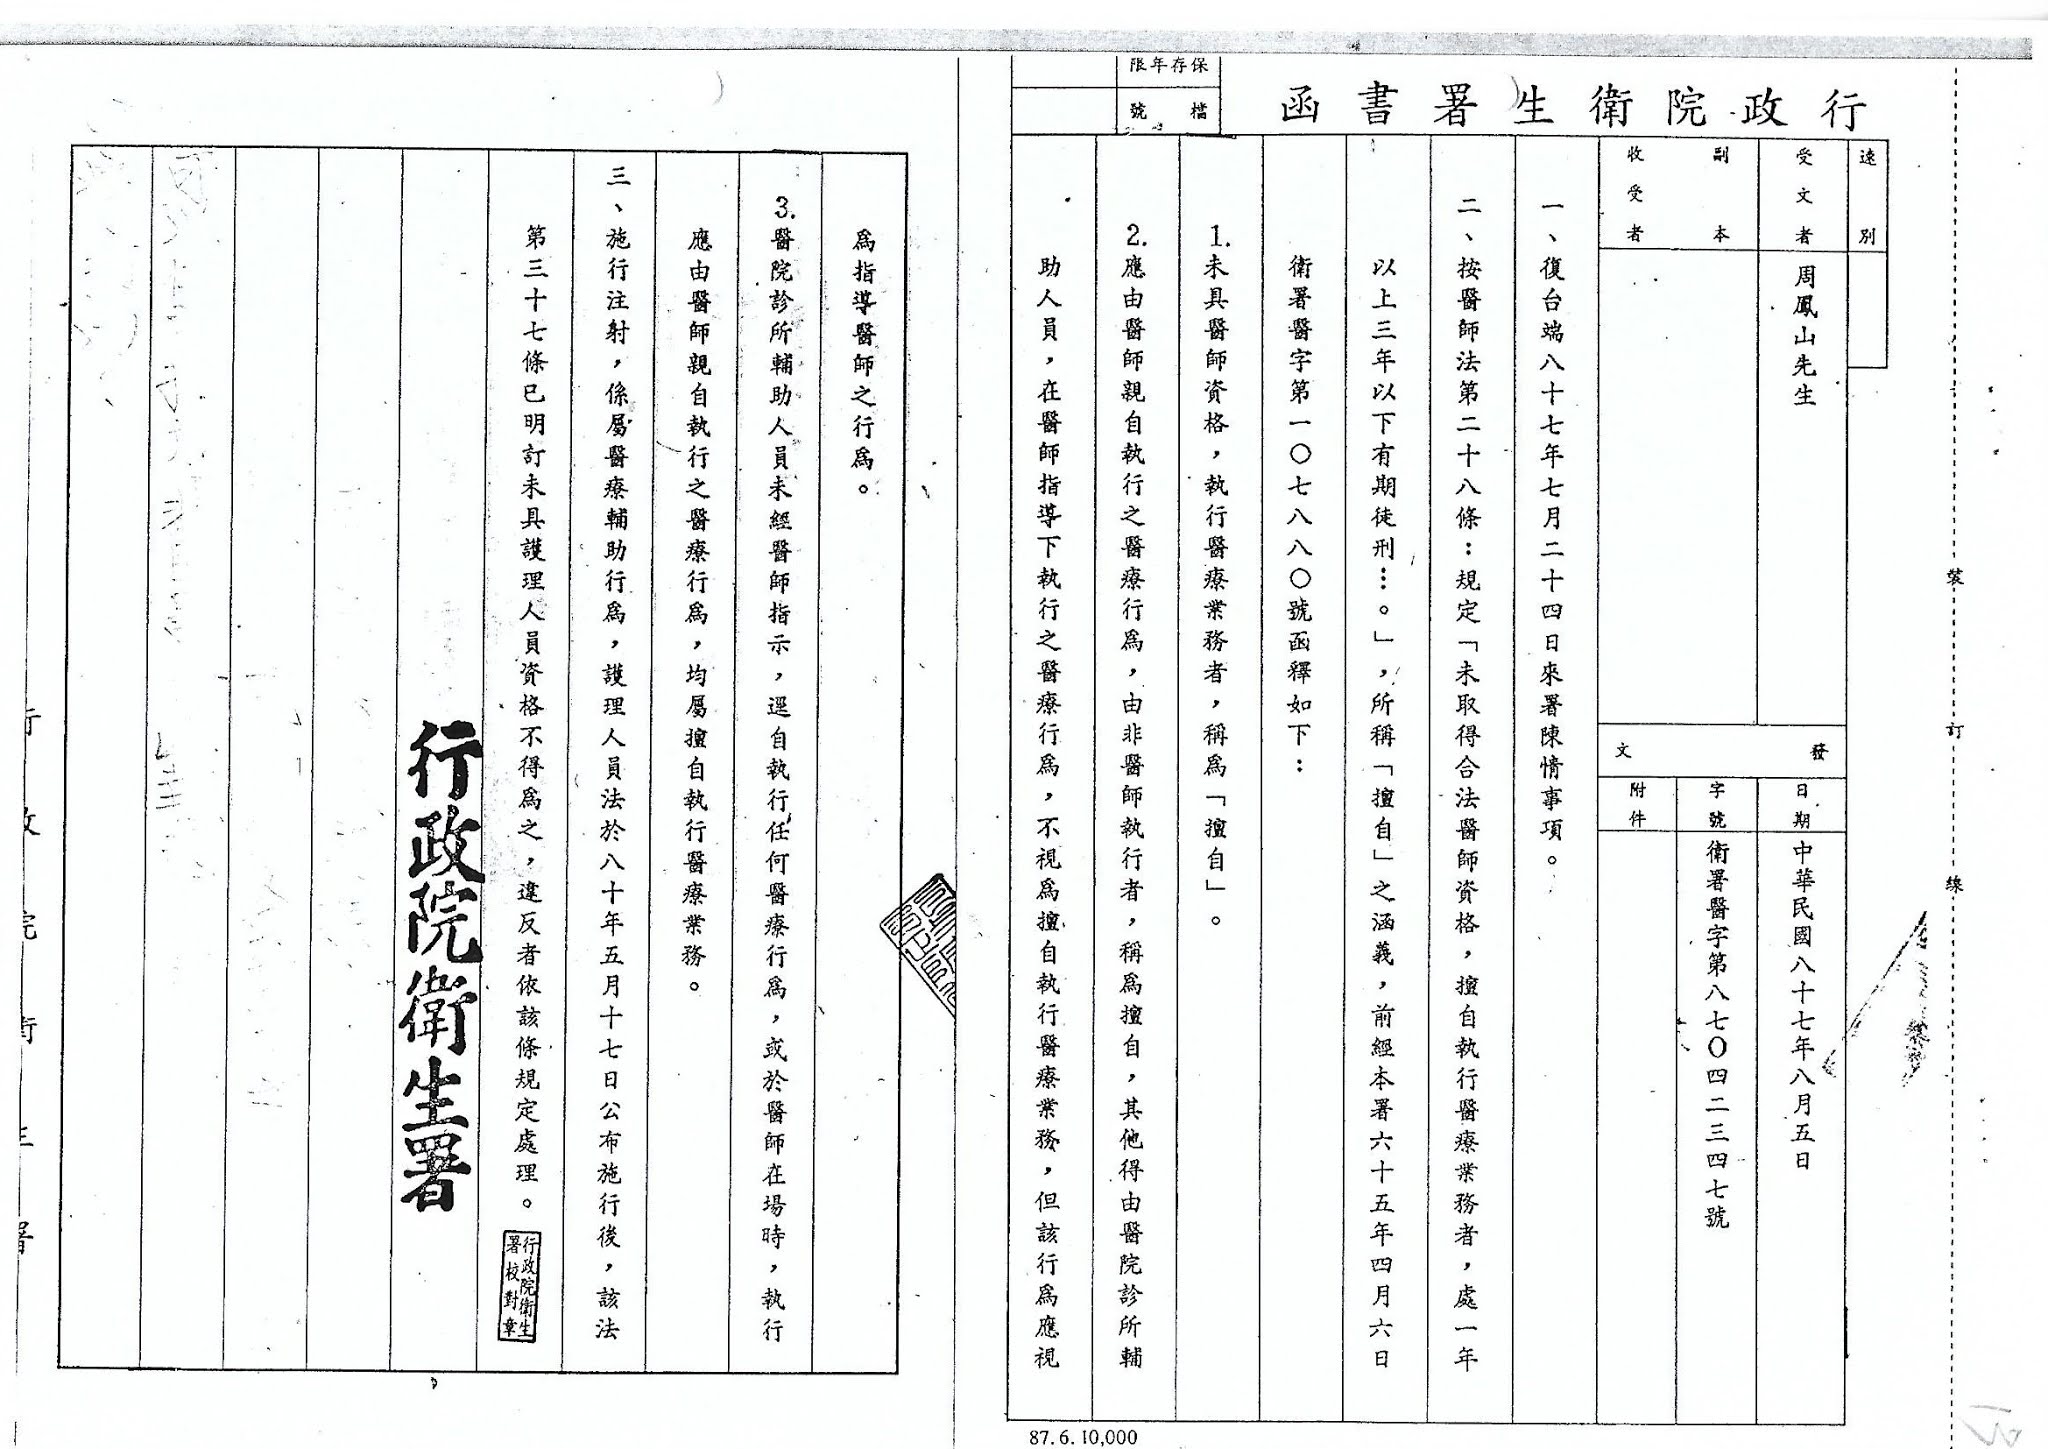 行政院衛生署書函
保存年限
檔號
速別
受文者
周鳳山先生
副本
收受者
發文
日期
中華民國八十七年八月五日
字號
衛署醫字第八七〇四二三四七號
附件
一、復台端八十七年七月二十四日來署陳情事項。
二、按醫師法第二十八條：規定「未取得合法醫師資格，擅自執行醫療業務者，處一年
以上三年以下有期徒刑…。」，所稱「擅自」之涵義，前經本署六十五年四月六日
衛署醫字第一〇七八八〇號函釋如下：
1.未具醫師資格，執行醫療業務者，稱為「擅自」。
2.應由醫師親自執行之醫療行為，由非醫師執行者，稱為擅自，其他得由醫院診所輔
助人員，在醫師指導下執行之醫療行為，不視為擅自執行醫療業務，但該行為應視
為指導醫師之行為。
3.醫院診所輔助人員未經醫師指示，逕自執行任何醫療行為，或於醫師在場時，執行
應由醫師親自執行之醫療行為，均屬擅自執行醫療業務。
三、施行注射，係屬醫療輔助行為，護理人員法於八十年五月十七日公布施行後，該法
第三十七條已明訂未具護理人員資格不得為之，違反者依該條規定處理。
行政院衛生
署校對章
行政院衛生署
裝訂線
87.6.10,000
行政院衛生署